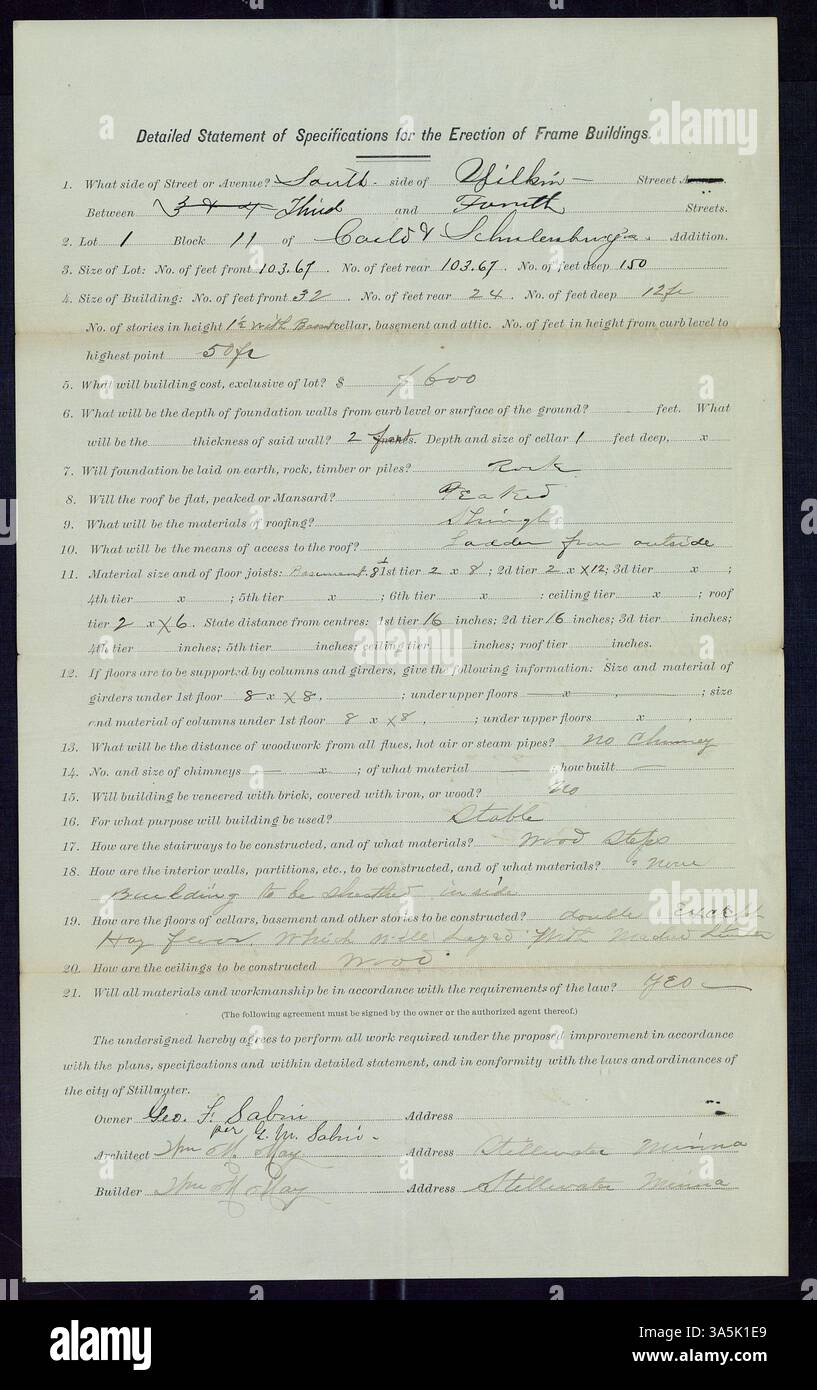 Detailed Statement of Specifications for the Erection of Frame Buildings.
1. What side of Street or Avenue? South side of Wilkin Streeet
Between 3 & 4 Third and Fourth Streets.
2. Lot 1 Block 11 of & Schulenburg's Addition.
3. Size of Lot: No. of feet front 103.67. No. of feet rear 103.67. No. of feet deep 150
4. Size of Building: No. of feet front 32 No. of feet rear 24. No. of feet deep 12
No. of stories in height 1½ With cellar, basement and attic. No. of feet in height from curb level to
highest point 50
5. What will building cost, exclusive of lot? $ 600
6. What will be the depth of foundation walls from curb level or surface of the ground? feet. What
will be the thickness of said wall? 2 feet Depth and size of cellar 1 feet deep, x
7. Will foundation be laid on earth, rock, timber or piles? Rock
8. Will the roof be flat, peaked or Mansard? Peaked
9. What will be the materials of roofing? Shingle
10. What will be the means of access to the roof? Ladder from outside
11. Material size and of floor joists: Basement 1st tier 2 x 8; 2d tier 2 x 12; 3d tier x ;
4th tier x ; 5th tier x ; 6th tier x : ceiling tier x ; roof
tier 2 x 6. State distance from centres: 1st tier 16 inches; 2d tier 16 inches; 3d tier inches;
4th tier inches; 5th tier inches; ceiling tier inches; roof tier inches.
12. If floors are to be supported by columns and girders, give the following information: Size and material of
girders under 1st floor 8 x 8, ; under upper floors x , ; size
and material of columns under 1st floor 8 x 8, ; under upper floors x ,
13. What will be the distance of woodwork from all flues, hot air or steam pipes? no Chimney
14. No. and size of chimneys — x ; of what material — how built —
15. Will building be veneered with brick, covered with iron, or wood? No
16. For what purpose will building be used? Stable
17. How are the stairways to be constructed, and of what materials? Wood Steps
18. How are the interior walls, partitions, etc., to be constructed, and of what materials? None
Building to be Sheathed inside
19. How are the floors of cellars, basement and other stories to be constructed? double Except
Hay Which Will With
20. How are the ceilings to be constructed Wood
21. Will all materials and workmanship be in accordance with the requirements of the law? Yes
(The following agreement must be signed by the owner or the authorized agent thereof.)
The undersigned hereby agrees to perform all work required under the proposed improvement in accordance
with the plans, specifications and within detailed statement, and in conformity with the laws and ordinances of
the city of Stillwater.
Owner Geo. F. Sabin Address
per G. M. Sabin
Architect Wm M. May Address Stillwater Minna
Builder Wm M May Address Stillwater Minna
alamy
Image ID: 3A5K1E9
www.alamy.com